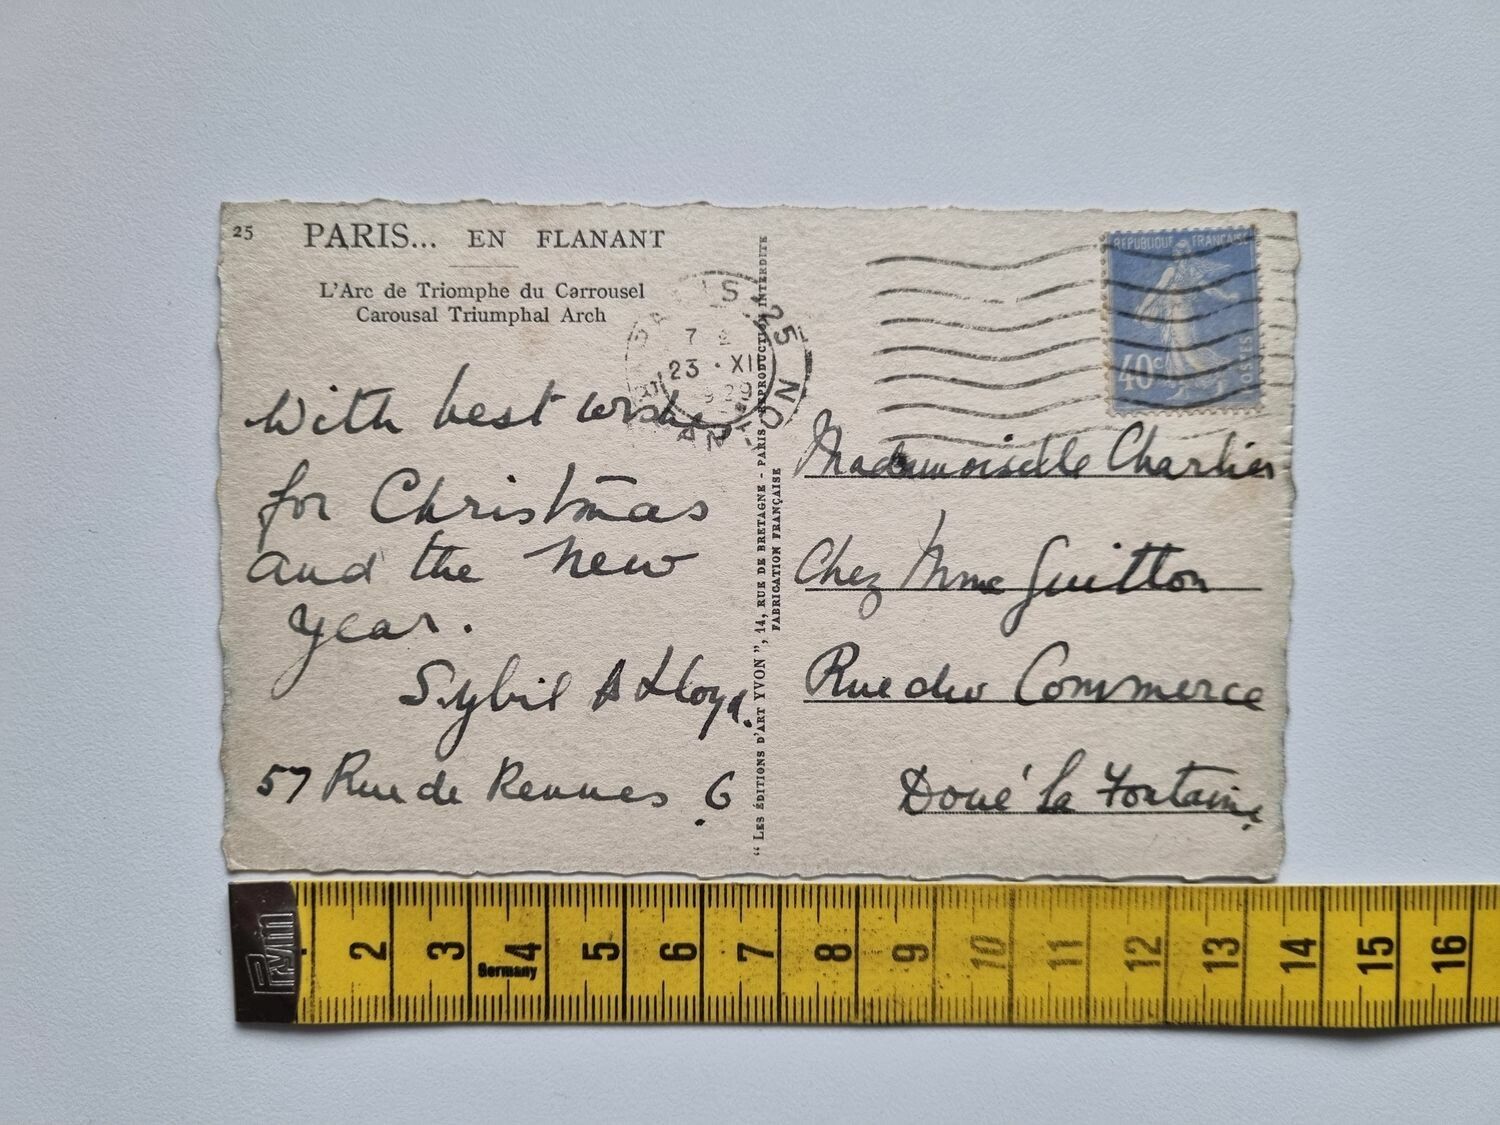 25
PARIS... EN FLANANT
L'Arc de Triomphe du Carrousel
Carousal Triumphal Arch
With best wishes
for Christmas
and the new
year.
Sybil A Lloyd.
57 Rue de Rennes. 6
" LES ÉDITIONS D'ART YVON ", 14, RUE DE BRETAGNE - PARIS REPRODUCTION INTERDITE
FABRICATION FRANÇAISE
PARIS 25
23 · XI
RÉPUBLIQUE FRANÇAISE
40c
POSTES
Mademoiselle Charlier
Chez Mme Guitton
Rue du Commerce
Doué la Fontaine
Prym
2 3 4 5 6 7 8 9 10 11 12 13 14 15 16
Germany